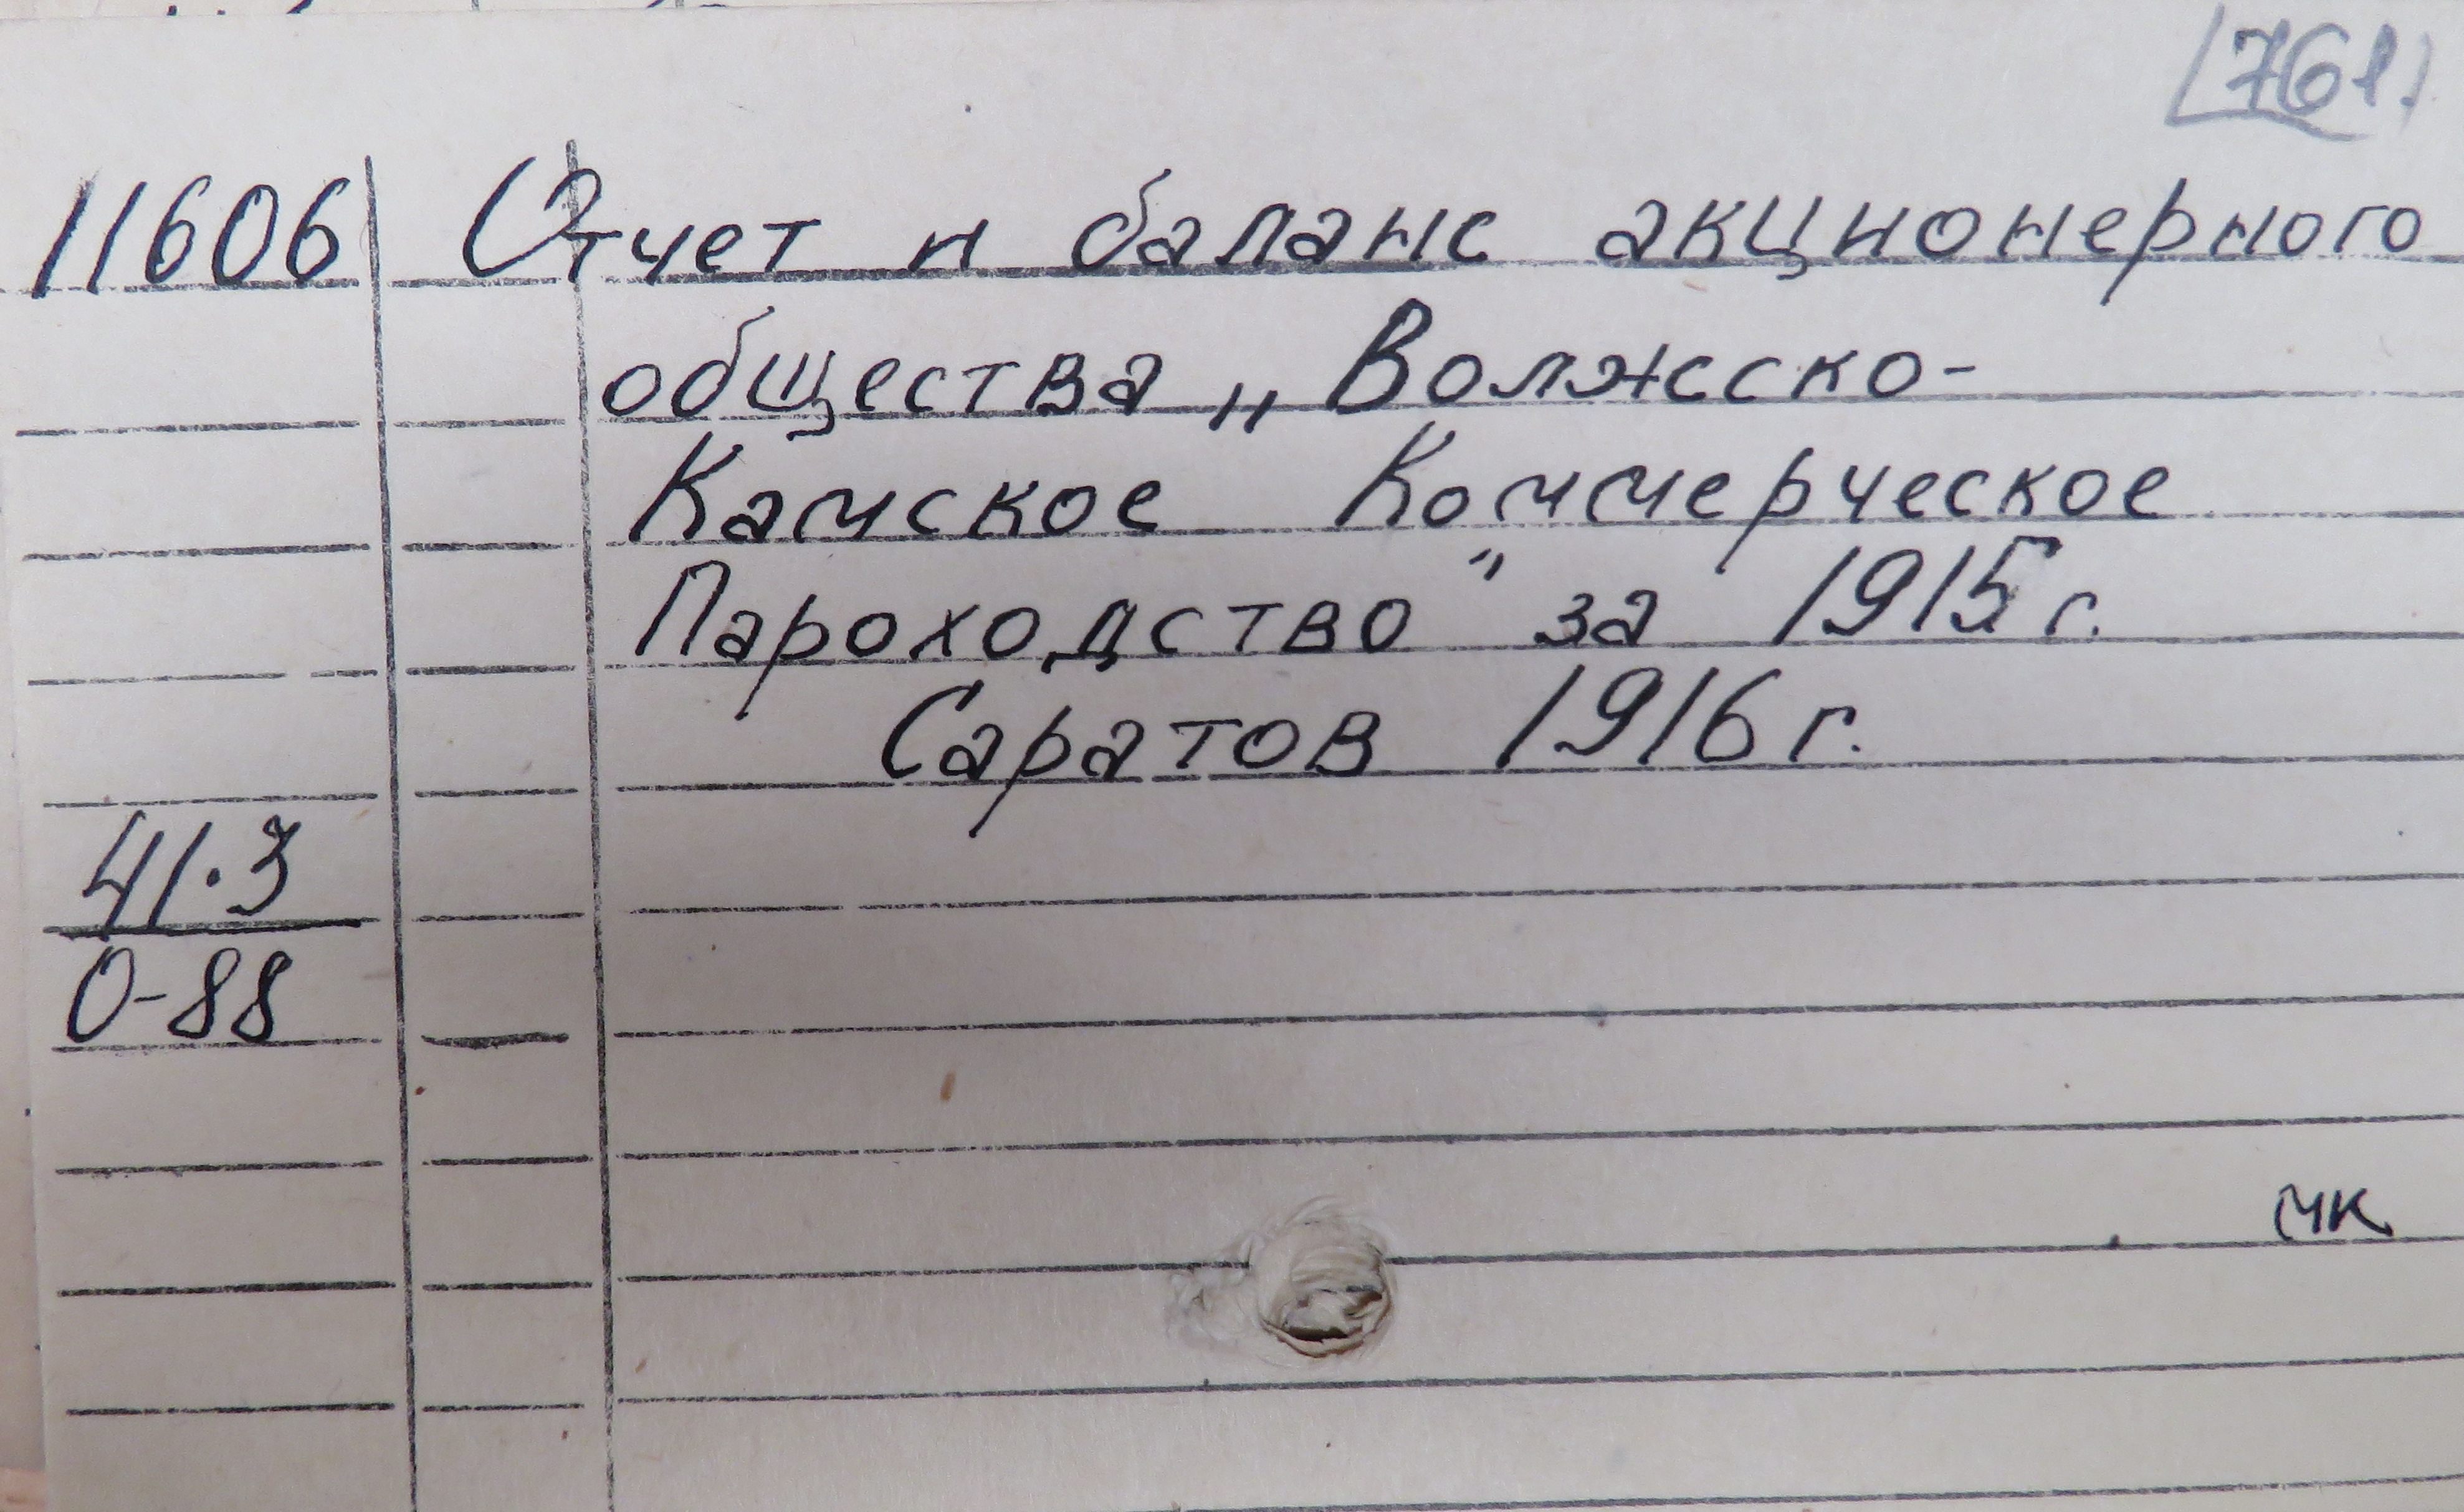 [761]
11606 Отчет и баланс акционерного
общества „Волжсско-
Камское Коммерческое
Пароходство" за 1915 г.
Саратов 1916 г.
41.3
О-88
мк